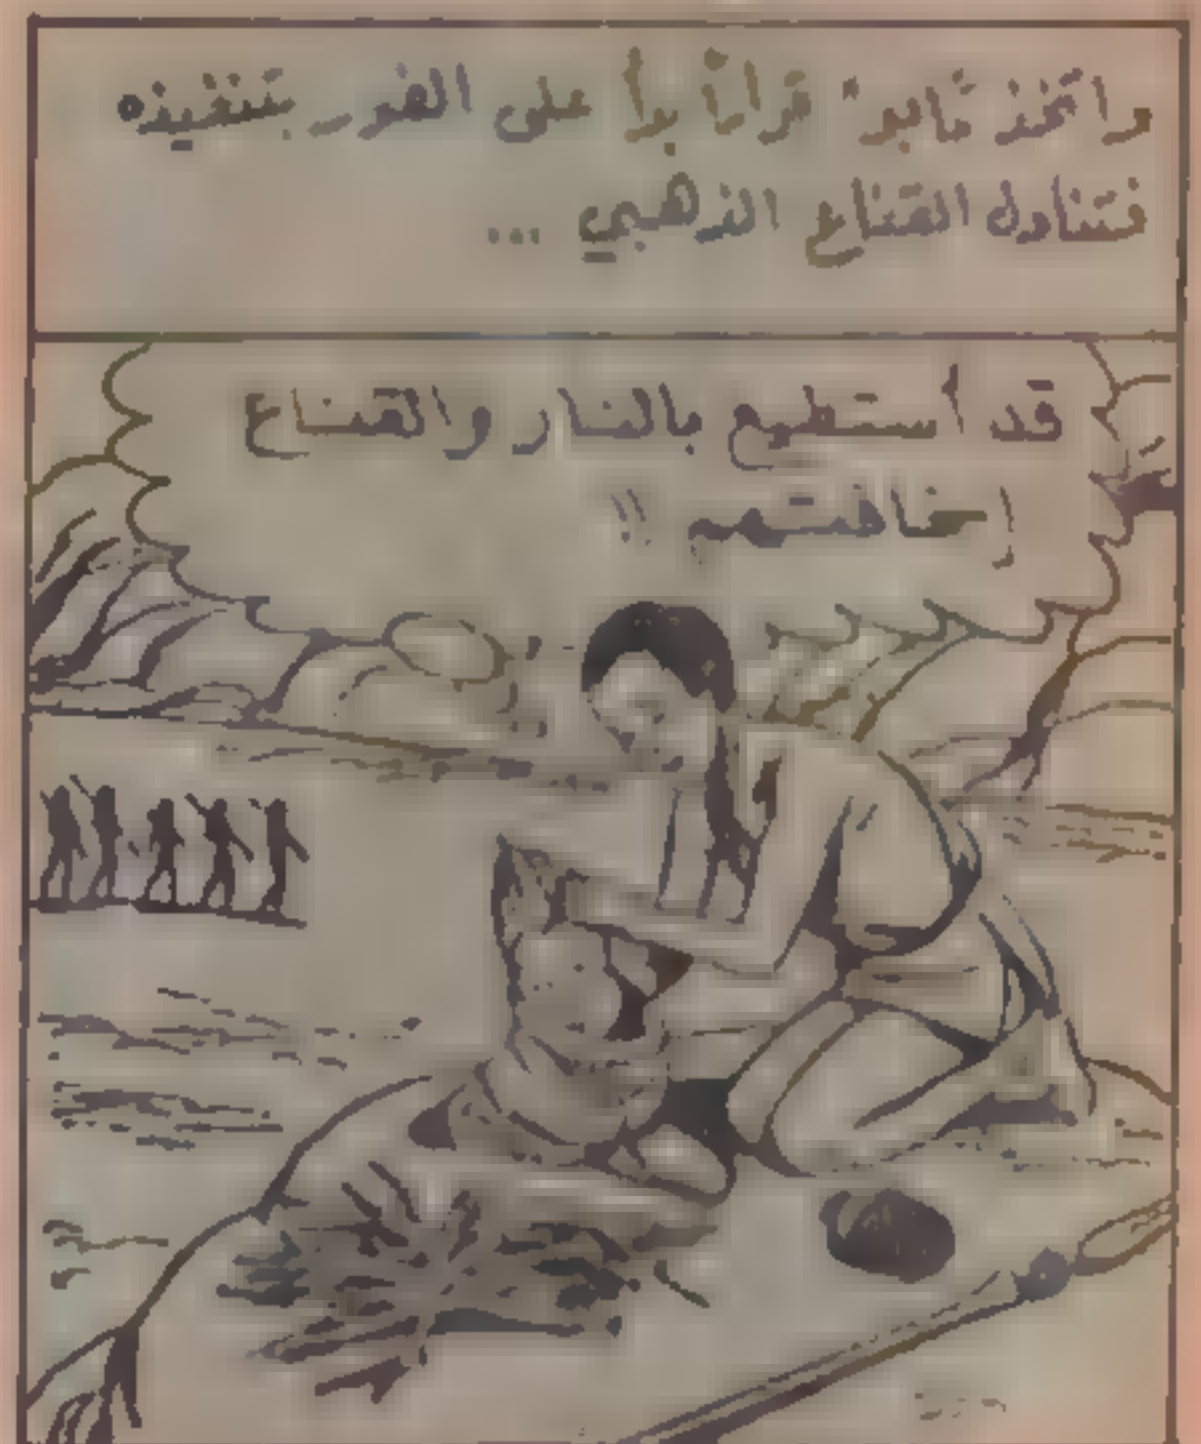 واتخذ تابو: قراراً بدأ على الفور بتنفيذه
فتناول القناع الذهبي ...
قد أستطيع بالنار والقناع
إخافتهم !!